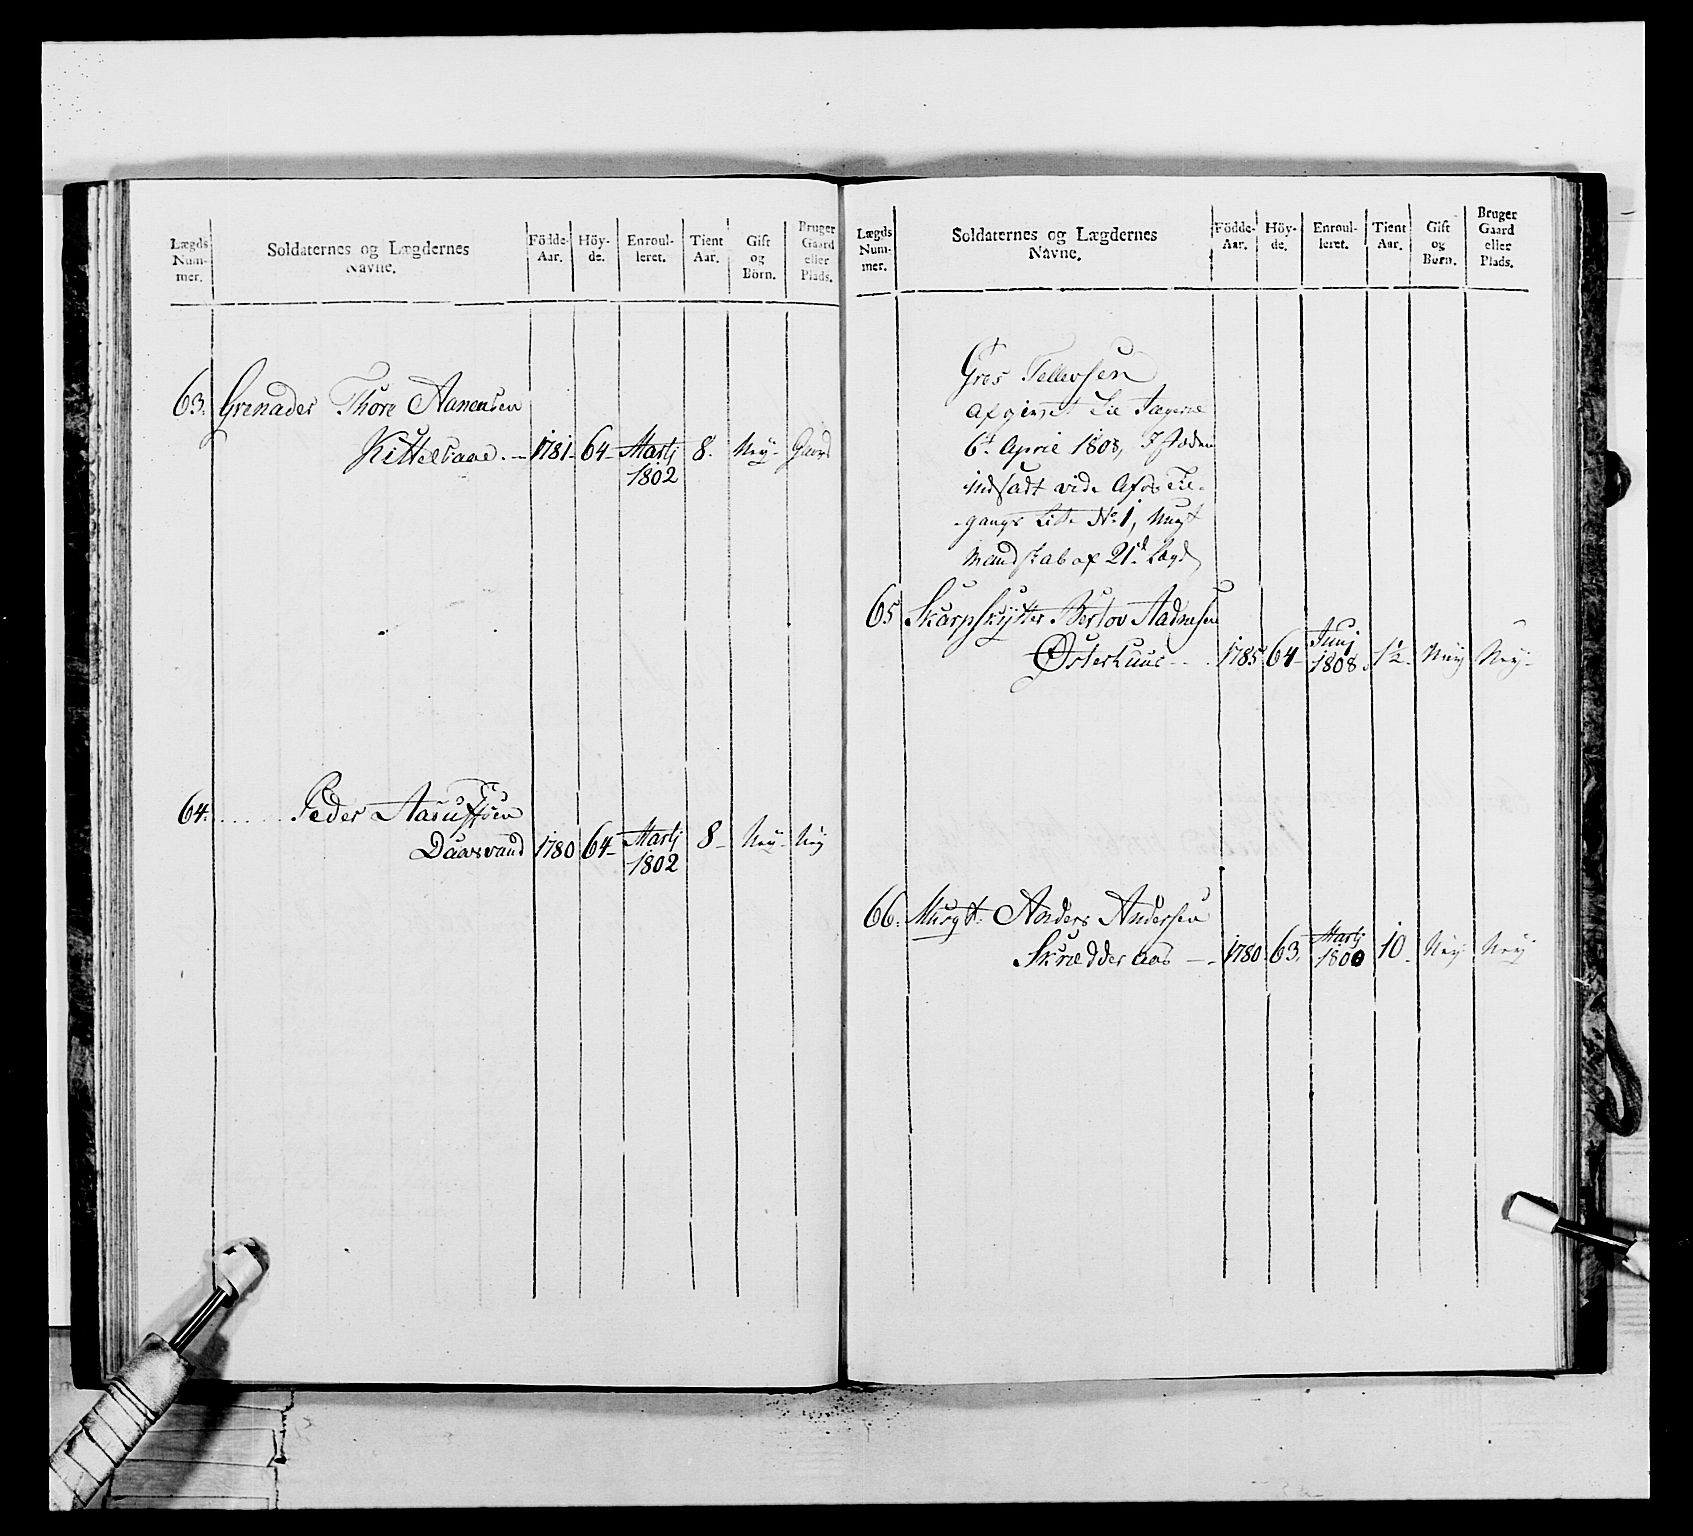 Lægds Nummer.
Soldaternes og Lægdernes Navne.
Födde-Aar.
Höyde.
Enroulleret.
Tient Aar.
Gift og Börn.
Bruger Gaard eller Plads.
63. Grenader Thore Aanensen
Kittelsaae. 1781 64 Martj 8. Ney Gaard
1802
64. Peder Aasulfsen
Daasvand 1780 64 Martj 8 Ney Ney
1802
Lægds Nummer.
Soldaternes og Lægdernes Navne.
Födde-Aar.
Höyde.
Enroulleret.
Tient Aar.
Gift og Börn.
Bruger Gaard eller Plads.
Gres Tellevsen
Afgivet til Jægerne
6t April 1808, I steden
indsadt vide Afg: Til-
gangs Liste No 1, Nugt
Mandskab af 21d Lægd
65 Skarpskytter Bertov Aadnesen
Østerhuus 1785 64 Junj 1808 1½ Ney Ney
66. Musqt. Anders Andersen
Skrædderaas 1780 63. Martj 1800 10 Ney Ney